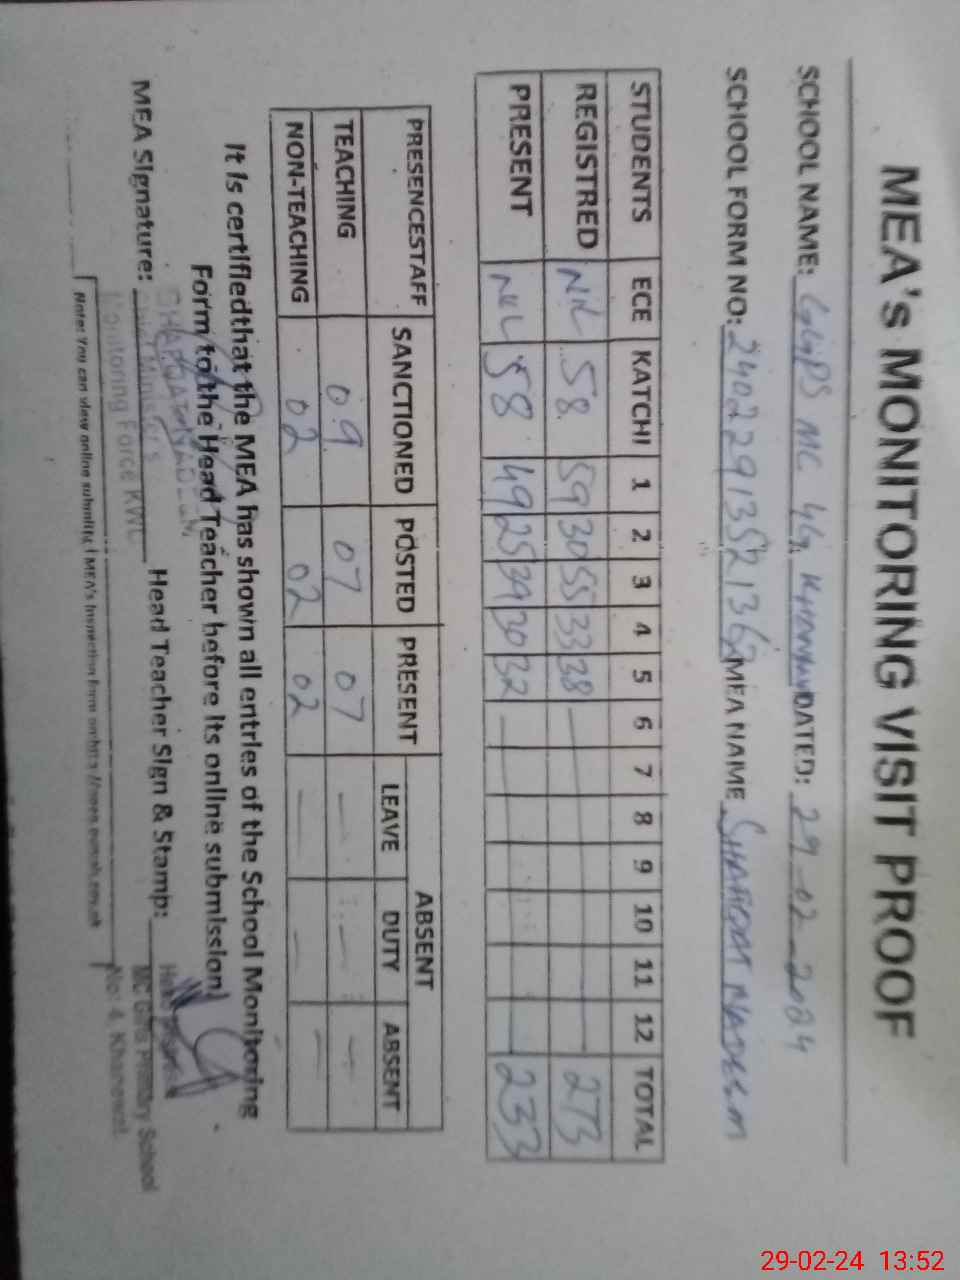 MEA's MONITORING VISIT PROOF
SCHOOL NAME: GGPS MC 4G, Khanewal DATED: 29-02-2024
SCHOOL FORM NO: 24022913521362 MEA NAME SHAFQAT NADEEM
STUDENTS ECE KATCHI 1 2 3 4 5 6 7 8 9 10 11 12 TOTAL
REGISTRED NIL 58 59 30 55 33 38 — 273
PRESENT NIL 58 49 25 39 30 32 — 233
PRESENCESTAFF SANCTIONED POSTED PRESENT ABSENT
LEAVE DUTY ABSENT
TEACHING 09 07 07 — — —
NON-TEACHING 02 02 02 — — —
It is certifiedthat the MEA has shown all entries of the School Monitoring
Form to the Head Teacher before its online submission!
MEA Signature: Head Teacher Sign & Stamp:
SHAFQAT NADEEM
Chief Minister's
Monitoring Force KWL
MC Girls Primary School
No: 4, Khanewal
Note: You can view online submitted MEA's Inspection form on
29-02-24 13:52